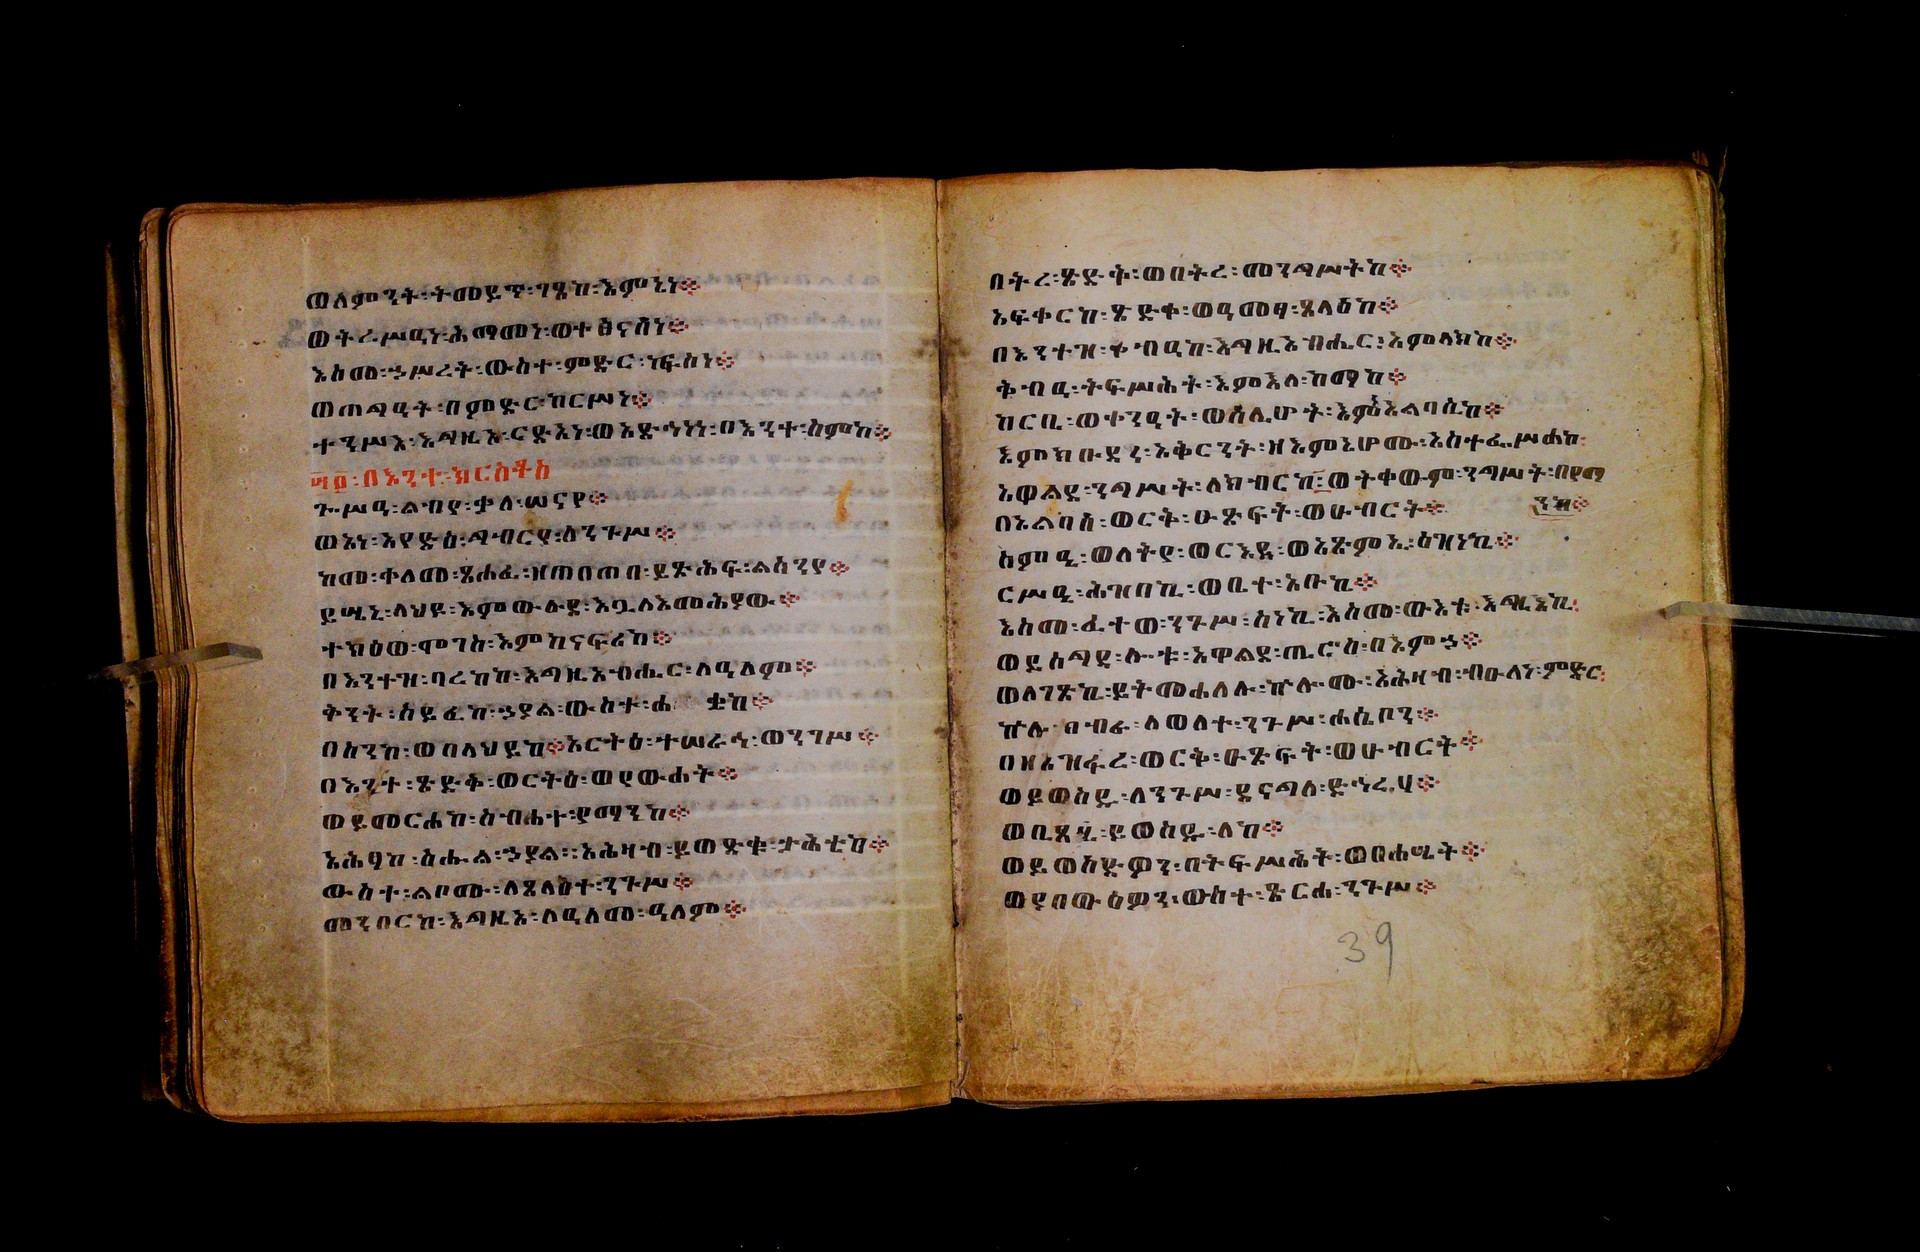 ወለምንት፡ትመይጥ፡ገጸከ፡እምኔነ፨
ወትረሥዐነ፡ሕማመነ፡ወተፅናሰነ፨
እስመ፡ኃሥረት፡ውስተ፡ምድር፡ነፍስነ፨
ወጠግዐት፡በምድር፡ከርሥነ፨
ተንሥእ፡እግዚእ፡ርድአነ፡ወአድኅነነ፡በእንተ፡ስምከ፨
፵፬፡በእንተ፡ክርስቶስ
ጉሥዐ፡ልብየ፡ቃለ፡ሠናየ፨
ወአነ፡አየድዕ፡ግብርየ፡ለንጉሥ፨
ከመ፡ቀለመ፡ጸሐፊ፡ዘጠበጠበ፡ይጽሕፍ፡ልሳንየ፨
ይሤኒ፡ላህዩ፡እምውሉደ፡እጓለእመሕያው፨
ተክዕወ፡ሞገስ፡እምከናፍሪከ፨
በእንተዝ፡ባረከከ፡እግዚአብሔር፡ለዓለም፨
ቅንት፡ሰይፈከ፡ኃያል፡ውስተ፡ሐቋከ፨
በስንከ፡ወበላህይከ፨አርትዕ፡ተሠራኅ፡ወንግሥ፨
በእንተ፡ጽድቅ፡ወርትዕ፡ወየውሐት፨
ወይመርሐከ፡ስብሐተ፡የማንከ፨
አሕፃከ፡ስሑል፡ኃያል፡አሕዛብ፡ይወድቁ፡ታሕቴከ፨
ውስተ፡ልቦሙ፡ለጸላእተ፡ንጉሥ፨
መንበርከ፡እግዚኦ፡ለዓለመ፡ዓለም፨
በትረ፡ጽድቅ፡በትረ፡መንግሥትከ፨
አፍቀርከ፡ጽድቀ፡ወዓመፃ፡ጸላዕከ፨
በእንተዝ፡ቀብዐከ፡እግዚአብሔር፡አምላክከ፨
ቅብዐ፡ትፍሥሕት፡እምእለ፡ከማከ፨
ከርቤ፡ወቀንዓት፡ወሰሊሆት፡እምአልባሲከ፨
እምክቡደ፡አቅርንት፡ዘእምኔሆሙ፡አስተፈሥሐከ፡
አዋልደ፡ንግሥት፡ለክብርከ፡ወትቀውም፡ንግሥት፡በየማ
ንከ፨
በአልባሰ፡ወርቅ፡ዑጽፍት፡ወሁብርት፨
ስምዒ፡ወለትየ፡ወርእዪ፡ወአጽምኢ፡ዕዝነኪ፨
ርሥዒ፡ሕዝበኪ፡ወቤተ፡አቡኪ፨
እስመ፡ፈተወ፡ንጉሥ፡ስነኪ፡እስመ፡ውእቱ፡እግዚእኪ፡
ወይሰግዳ፡ሎቱ፡አዋልደ፡ጢሮስ፡በአምኃ፨
ወለገጽኪ፡ይትመሐለሉ፡ኵሎሙ፡አሕዛብ፡ብዑላነ፡ምድር፡
ኵሉ፡ክብራ፡ለወለተ፡ንጉሥ፡ሐሴቦን፨
በዘአዝፋረ፡ወርቅ፡ዑጽፍት፡ወሁብርት፨
ወይወስዱ፡ለንጉሥ፡ደናግለ፡ድኅሬሃ፨
ወቢጻሂ፡ይወስዱ፡ለከ፨
ወይወስድዎን፡በትፍሥሕት፡ወበሐሤት፨
ወያበውዕዎን፡ውስተ፡ጽርሐ፡ንጉሥ፨
39